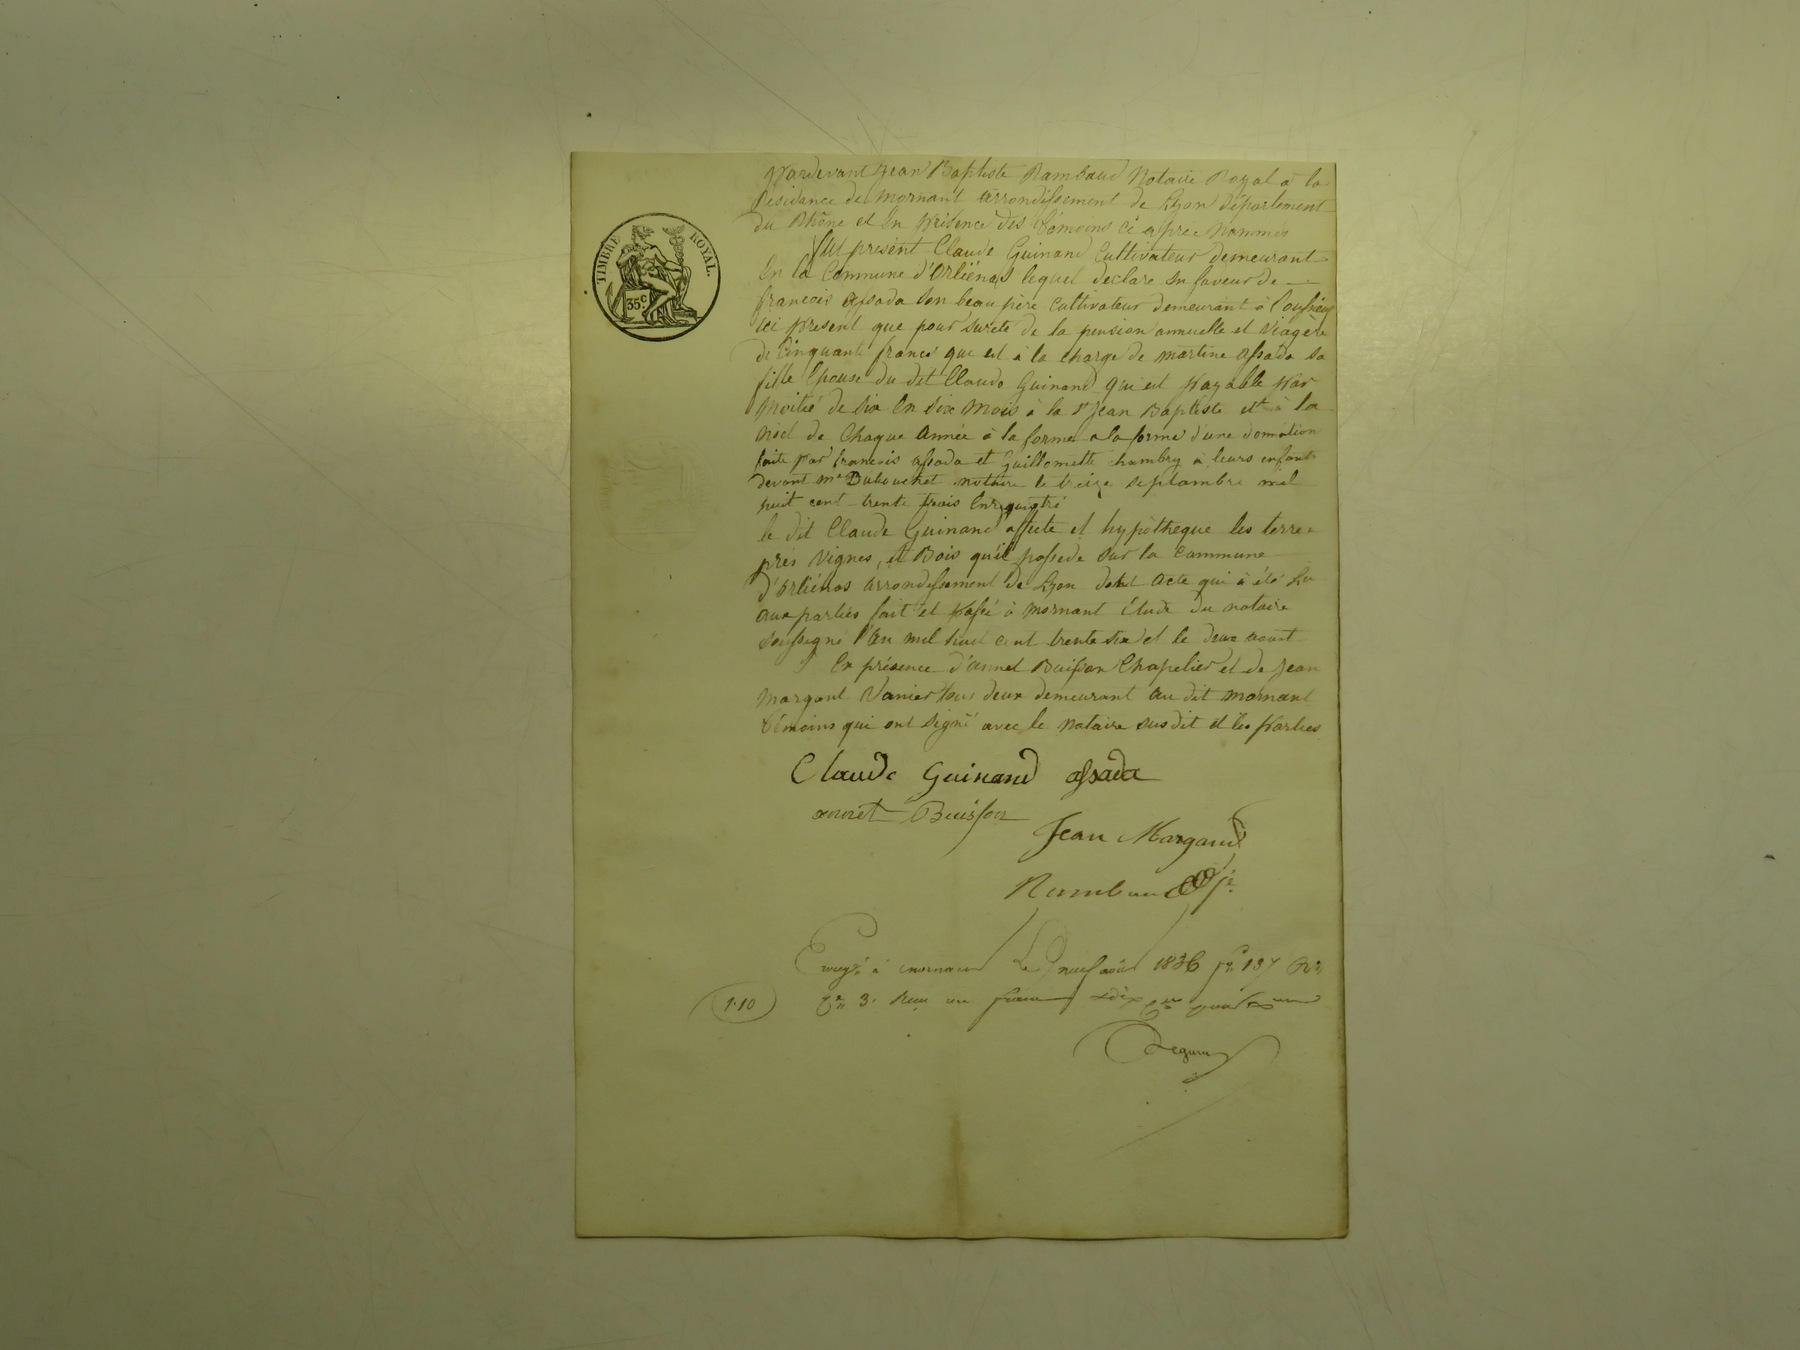 TIMBRE ROYAL.
35c
Pardevant Jean Baptiste Rambaud Notaire Royal a la
Residance de Mornant arrondissement de Lyon département
du Rhône et En présence des témoins ci apree Nommés
fut présent Claude Guinand Cultivateur demeurant
En la Commune d'Orliénas lequel declare en faveur de
francois assada son beau père Cultivateur demeurant à
ici présent que pour sureté de la pension annuelle et viagère
de Cinquante francs qui est à la charge de martine assada sa
fille Epouse du dit Claude Guinand qui est payable par
Moitié de six En six Mois à la St Jean Baptiste et à la
Noel de Chaque Année à la forme a la forme d'une donnation
faite par francois assada et Guillomette chambry a leurs enfants
devant Me Dubouchet notaire le treize septambre mil
huit cent trente trois Enregistré
le dit Claude Guinand affecte et hypotheque les terre
prés Vignes, et Bois qu'il possede sur la Commune
d'Orliénas arrondissement de Lyon dont Acte qui à été Lu
aux parties fait et passé à Mornant Etude du notaire
soussigné l'an mil huit cent trente six et le deux aout
En présence d'annet Buisson Chapelier et de Jean
Margant Vanier tous deux demeurant au dit Mornant
témoins qui ont signé avec le Notaire susdit et les parties
Claude Guinand assada
annet Buisson
Jean Margand
Rambaud
Enregé à mornant Le neuf août 1836 fo 137
1.10
3. Reçu un franc dix